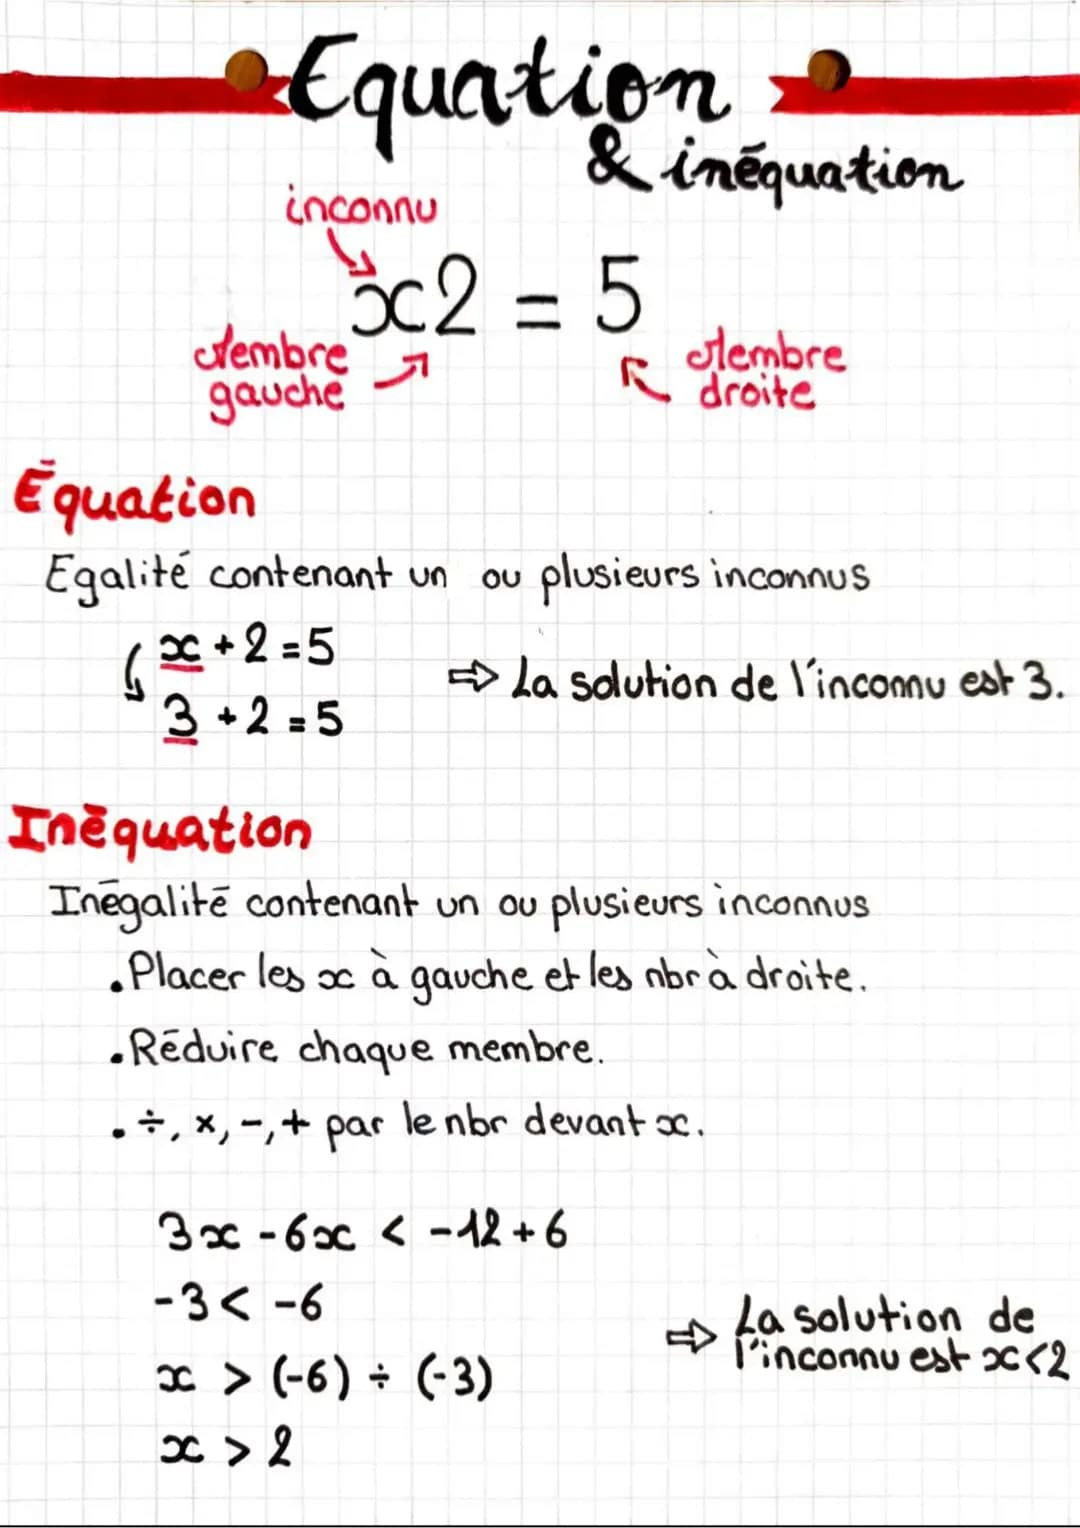 Equation
& inéquation
inconnu
x2 = 5
Membre
gauche
Membre
droite
Équation
Egalité contenant un ou plusieurs inconnus
x + 2 = 5
3 + 2 = 5
⇨ La solution de l'inconnu est 3.
Inéquation
Inégalité contenant un ou plusieurs inconnus
. Placer les x à gauche et les nbr à droite.
. Réduire chaque membre.
. ÷, ×, -, + par le nbr devant x.
3x - 6x < -12 + 6
-3 < -6
x > (-6) ÷ (-3)
x > 2
⇨ La solution de
l'inconnu est x<2